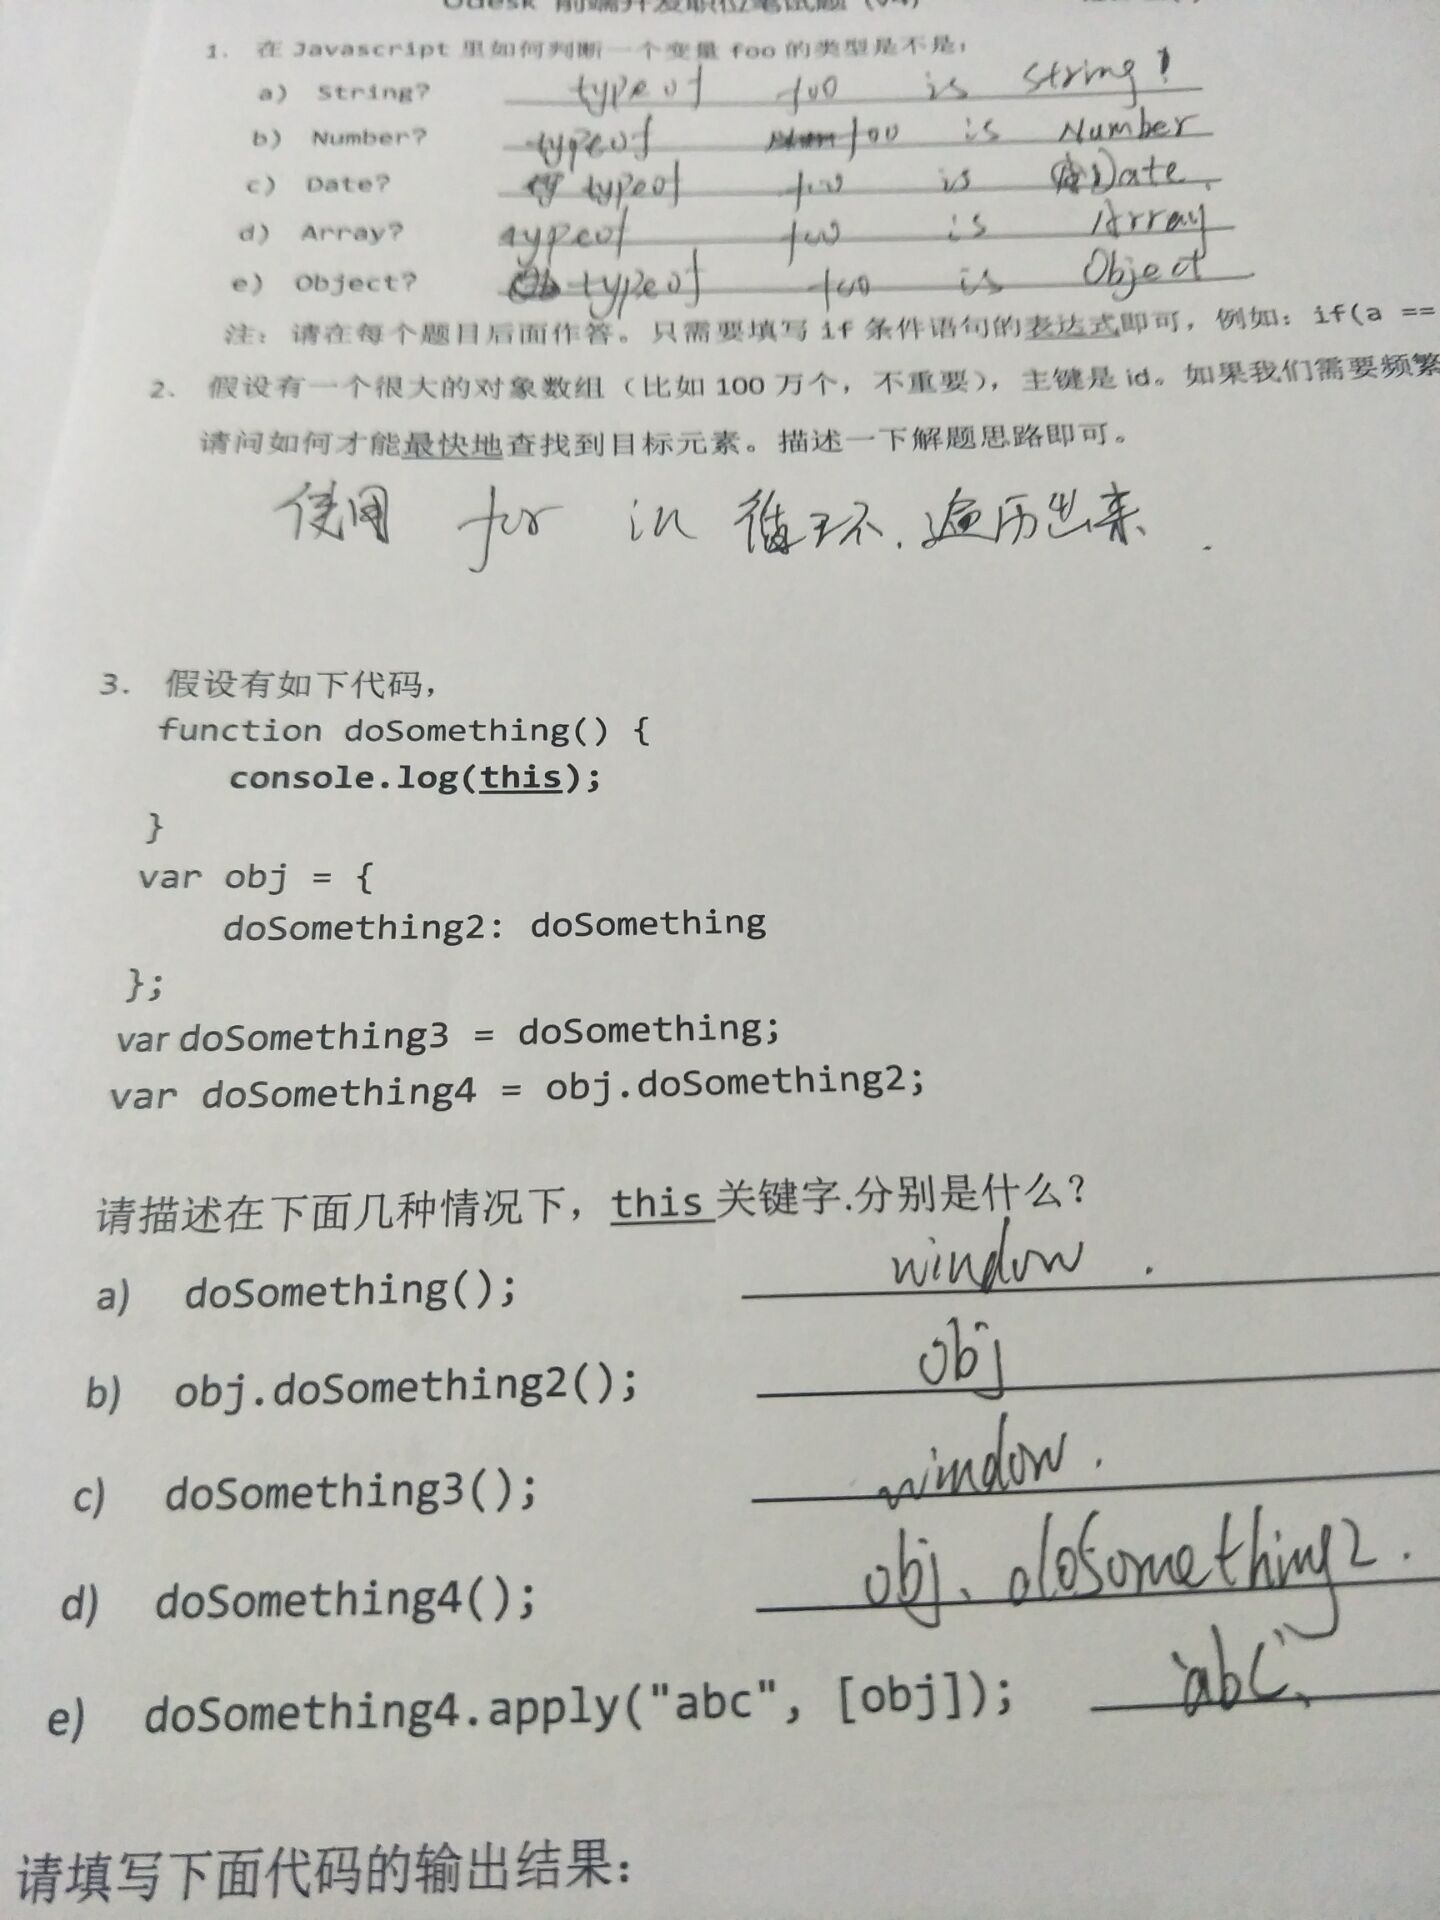 Udesk 前端开发职位笔试题 (V4)
1. 在 Javascript 里如何判断一个变量 foo 的类型是不是:
a) String? typeof foo is string!
b) Number? typeof foo is Number
c) Date? typeof foo is Date.
d) Array? typeof foo is Array
e) Object? typeof foo is Object
注: 请在每个题目后面作答。只需要填写 if 条件语句的表达式即可, 例如: if(a ==
2. 假设有一个很大的对象数组 (比如 100 万个, 不重要), 主键是 id。如果我们需要频繁
请问如何才能最快地查找到目标元素。描述一下解题思路即可。
使用 for in 循环, 遍历出来.
3. 假设有如下代码,
function doSomething() {
console.log(this);
}
var obj = {
doSomething2: doSomething
};
var doSomething3 = doSomething;
var doSomething4 = obj.doSomething2;
请描述在下面几种情况下, this 关键字.分别是什么?
a) doSomething(); window .
b) obj.doSomething2(); obj
c) doSomething3(); window .
d) doSomething4(); obj. doSomething2 .
e) doSomething4.apply("abc", [obj]); "abc"
请填写下面代码的输出结果: